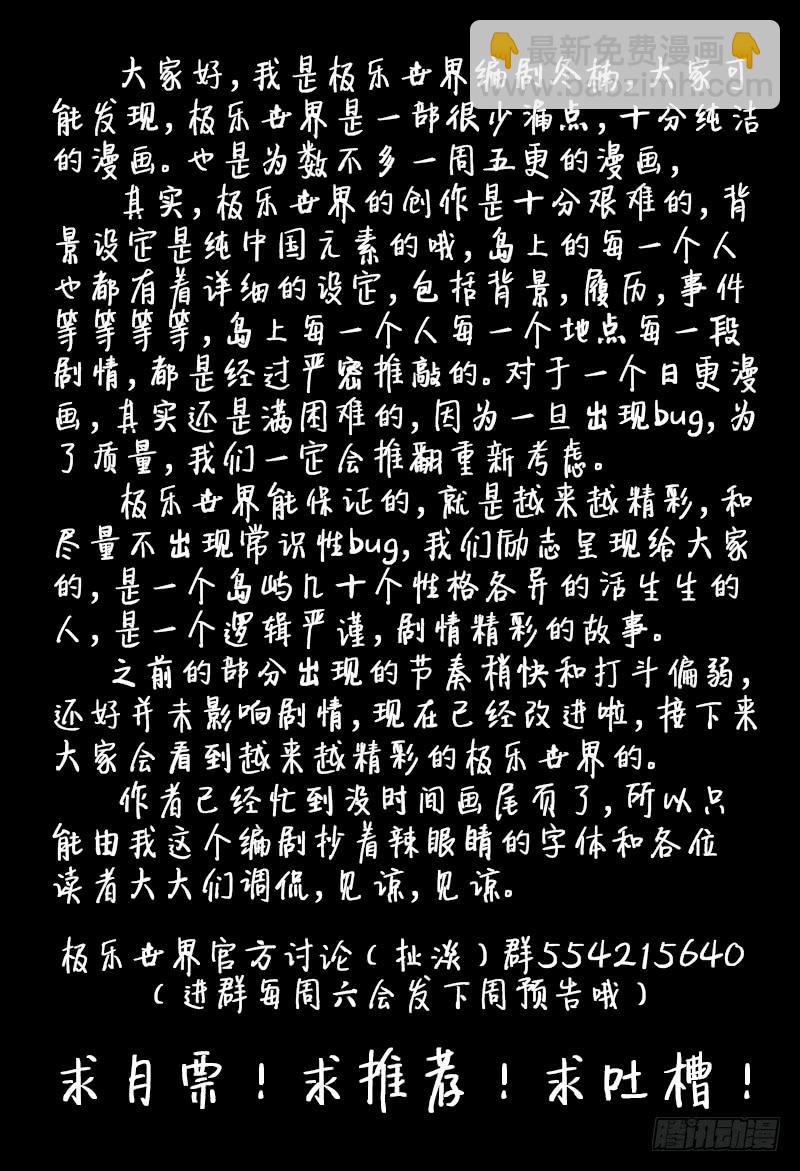 👇最新免费漫画👇
www.baozimh.com
大家好,我是极乐世界编剧冬楠,大家可
能发现,极乐世界是一部很少漏点,十分纯洁
的漫画。也是为数不多一周五更的漫画,
其实,极乐世界的创作是十分艰难的,背
景设定是纯中国元素的哦,岛上的每一个人
也都有着详细的设定,包括背景,履历,事件
等等等等,岛上每一个人每一个地点每一段
剧情,都是经过严密推敲的。对于一个日更漫
画,其实还是满困难的,因为一旦出现bug,为
了质量,我们一定会推翻重新考虑。
极乐世界能保证的,就是越来越精彩,和
尽量不出现常识性bug,我们励志呈现给大家
的,是一个岛屿几十个性格各异的活生生的
人,是一个逻辑严谨,剧情精彩的故事。
之前的部分出现的节奏稍快和打斗偏弱,
还好并未影响剧情,现在已经改进啦,接下来
大家会看到越来越精彩的极乐世界的。
作者已经忙到没时间画尾页了,所以只
能由我这个编剧抄着辣眼睛的字体和各位
读者大大们调侃,见谅,见谅。
极乐世界官方讨论(扯淡)群554215640
(进群每周六会发下周预告哦)
求月票!求推荐!求吐槽!
腾讯动漫